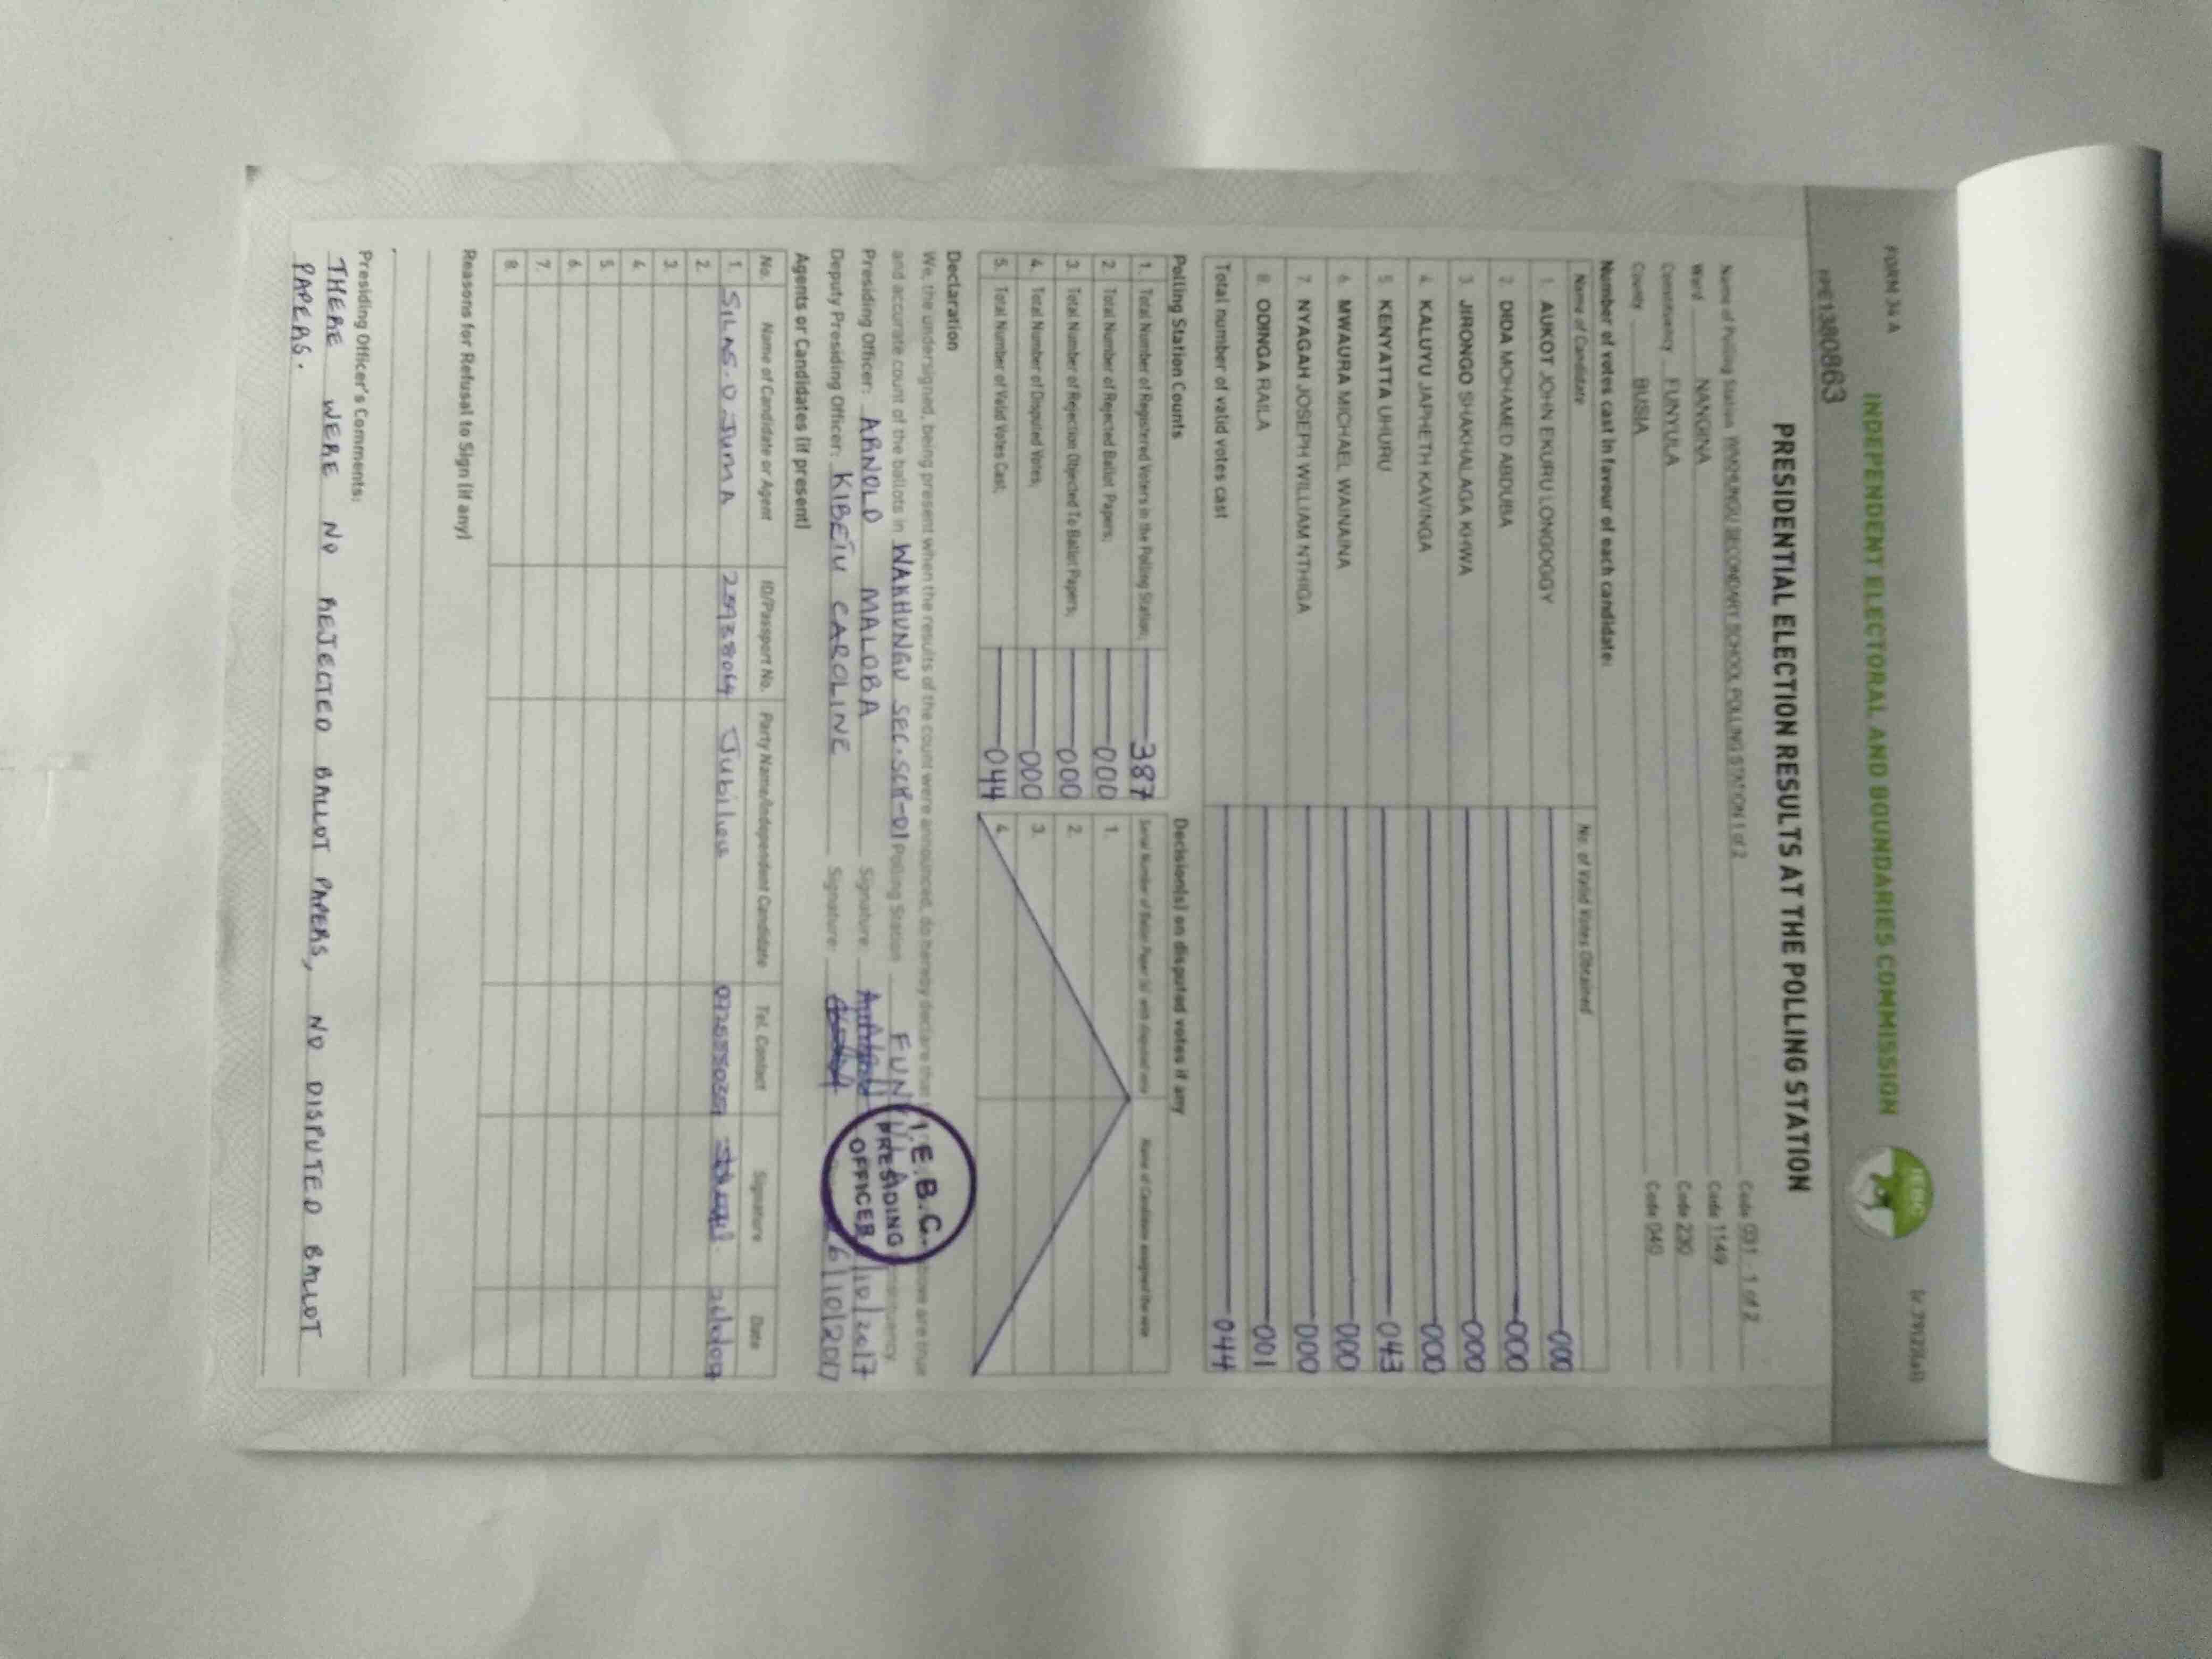 FORM 34 A
INDEPENDENT ELECTORAL AND BOUNDARIES COMMISSION
IEBC
PRESIDENTIAL ELECTION RESULTS AT THE POLLING STATION
Name of Polling Station SECONDARY SCHOOL POLLING STATION 1 of 2 Code 031 - 1 of 2
Ward NANGINA Code 1149
Constituency FUNYULA Code 230
County BUSIA Code 040
Number of votes cast in favour of each candidate:
Name of Candidate No. of Valid Votes Obtained
1. AUKOT JOHN EKURU LONGOGGY 000
2. DIDA MOHAMED ABDUBA 000
3. JIRONGO SHAKHALAGA KHWA 000
4. KALUYU JAPHETH KAVINGA 000
5. KENYATTA UHURU 043
6. MWAURA MICHAEL WAINAINA 000
7. NYAGAH JOSEPH WILLIAM NTHIGA 000
8. ODINGA RAILA 001
Total number of valid votes cast 044
Polling Station Counts
1. Total Number of Registered Voters in the Polling Station; 387
2. Total Number of Rejected Ballot Papers; 000
3. Total Number of Rejection Objected To Ballot Papers; 000
4. Total Number of Disputed Votes; 000
5. Total Number of Valid Votes Cast; 044
Decision(s) on disputed votes if any
1.
2.
3.
4.
Declaration
We, the undersigned, being present when the results of the count were announced, do hereby declare that are true
and accurate count of the ballots in WAKHUNGU SEC.SCH-01 Polling Station
Presiding Officer: ARNOLD MALOBA Signature: /10/2017
Deputy Presiding Officer: KIBETU CAROLINE Signature: 6/10/2017
I.E.B.C.
PRESIDING
OFFICER
Agents or Candidates (if present)
No. Name of Candidate or Agent ID/Passport No. Party Name/Independent Candidate Tel. Contact Signature Date
1. SILAS.O.JUMA Jubilee
2.
3.
4.
5.
6.
7.
8.
Reasons for Refusal to Sign (if any)
Presiding Officer's Comments:
THERE WERE NO REJECTED BALLOT PAPERS, NO DISPUTED BALLOT
PAPERS.